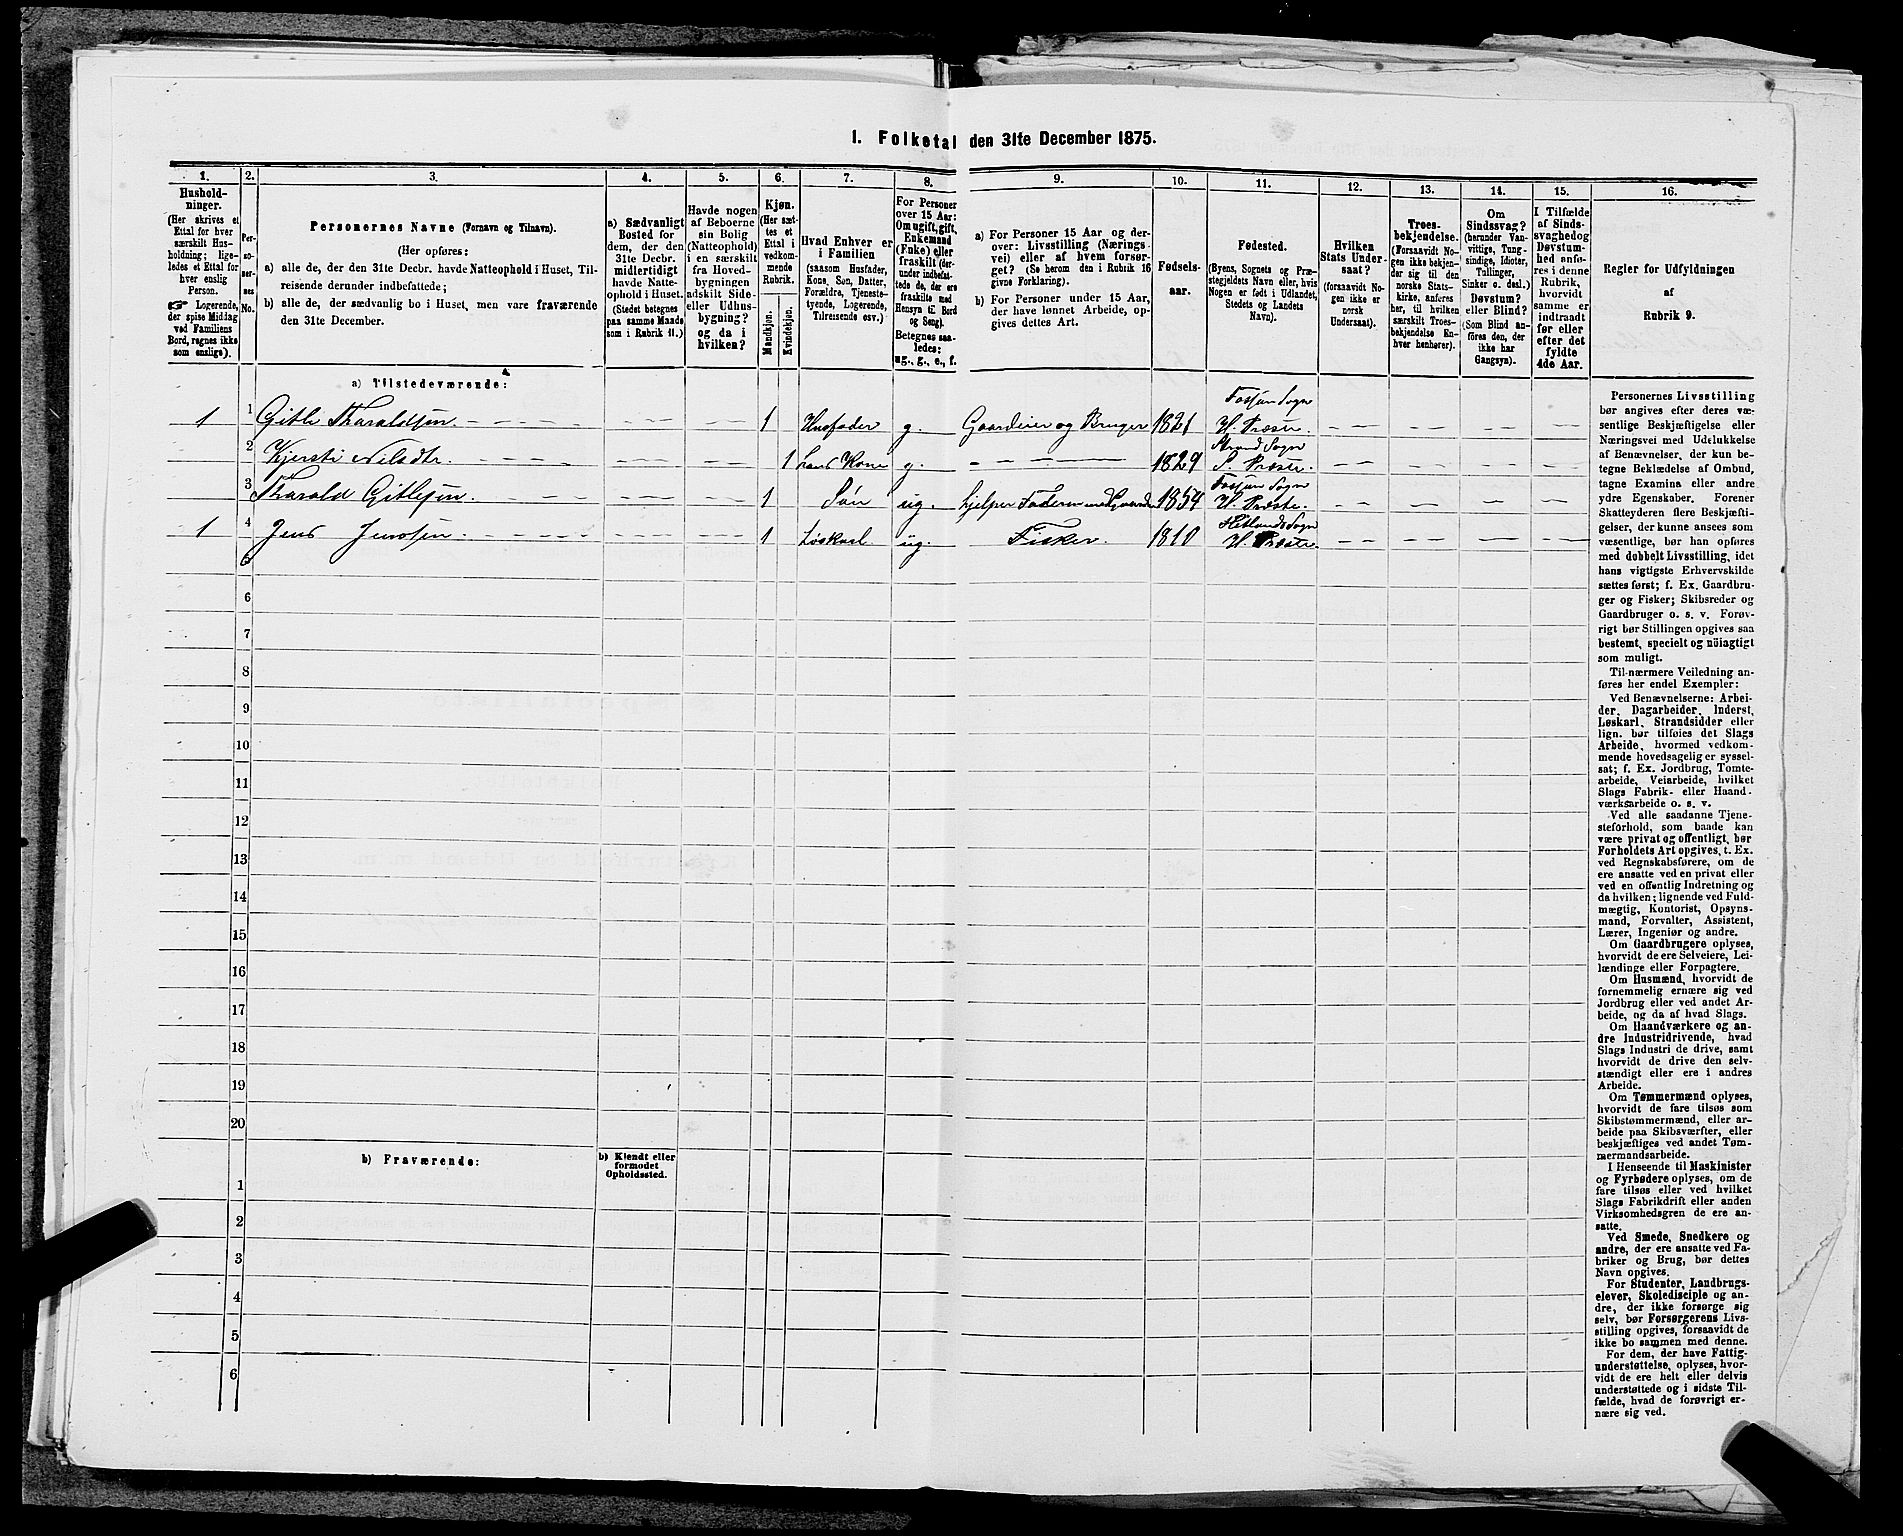 1. Folketal den 31te December 1875.
1.
Hushold-
ninger.
(Her skrives et
Ettal for hver
særskilt Hus-
holdning; lige-
ledes et Ettal for
hver enslig
Person.
Logerende,
der spise Middag
ved Familiens
Bord, regnes ikke
som enslige).
2.
Per-
so-
ner-
nes
No.
3.
Personernes Navne (Fornavn og Tilnavn).
(Her opføres:
a) alle de, der den 31te Decbr. havde Natteophold i Huset, Til-
reisende derunder indbefattede;
b) alle de, der sædvanlig bo i Huset, men vare fraværende
den 31te December.
4.
a) Sædvanligt
Bosted for
dem, der den
31te Decbr.
midlertidigt
havde Natte-
ophold i Huset.
(Stedet betegnes
paa samme Maade
som i Rubrik 11.)
5.
Havde nogen
af Beboerne
sin Bolig
(Natteophold)
i en særskilt
fra Hoved-
bygningen
adskilt Side-
eller Udhus-
bygning?
og da i
hvilken?
6.
Kjøn.
(Her sæt-
tes et
Ettal i
vedkom-
mende
Rubrik.
Mandkjøn.
Kvindekjøn.
7.
Hvad Enhver er
i Familien
(saasom Husfader,
Kone, Søn, Datter,
Forældre, Tjeneste-
tyende, Logerende,
Tilreisende osv.)
8.
For Personer
over 15 Aar:
Om ugift, gift,
Enkemand
(Enke) eller
fraskilt (der-
under indbefat-
tede de, der ere
fraskilte med
Hensyn til Bord
og Seng).
Betegnes saa-
ledes:
ug., g., e., f.
9.
a) For Personer 15 Aar og der-
over: Livsstilling (Nærings-
vei) eller af hvem forsør-
get? (Se herom den i Rubrik 16
givne Forklaring).
b) For Personer under 15 Aar,
der have lønnet Arbeide, op-
gives dettes Art.
10.
Fødsels-
aar.
11.
Fødested.
(Byens, Sognets og Præ-
stegjeldets Navn eller, hvis
Nogen er født i Udlandet,
Stedets og Landets
Navn).
12.
Hvilken
Stats Under-
saat?
(forsaavidt No-
gen ikke er
norsk
Undersaat).
13.
Troes-
bekjendelse.
(Forsaavidt No-
gen ikke bekjen-
der sig til den
norske Stats-
kirke, anføres
her, til hvilken
særskilt Troes-
bekjendelse En-
hver henhører).
14.
Om
Sindssvag?
(herunder Van-
vittige, Idioter,
Tullinger,
Sinker o. desl.)
Døvstum?
eller Blind?
(Som Blind an-
føres den, der
ikke har
Gangsyn).
15.
I Tilfælde
af Sinds-
svaghed og
Døvstum-
hed anfø-
res i denne
Rubrik,
hvorvidt
samme er
indtraadt
før eller
efter det
fyldte
4de Aar.
16.
Regler for Udfyldningen
af
Rubrik 9.
a) Tilstedeværende:
1 1 Gitle Tharaldsen 1 Husfader g. Gaardeier og Bruger 1821 Fossan Sogn H. Præste.
2 Kjersti Nilsdtr. 1 hans Kone g. 1829 Strand Sogn S. Præste.
3 Tharald Gitlesen 1 Søn ug. hjelper Faderen med Gaarden 1854 Fossan Sogn H. Præste.
1 4 Jens Jenssen 1 Løskarl ug. Fisker. 1810 Hetlands Sogn H. Præste.
5
6
7
8
9
10
11
12
13
14
15
16
17
18
19
20
b) Fraværende:
b) Kjendt eller
formodet
Opholdssted.
1
2
3
4
5
6
Personernes Livsstilling
bør angives efter deres væ-
sentlige Beskjæftigelse eller
Næringsvei med Udelukkelse
af Benævnelser, der kun be-
tegne Beklædelse af Ombud,
tagne Examina eller andre
ydre Egenskaber. Forener
Skatteyderen flere Beskjæfti-
gelser, der kunne ansees som
væsentlige, bør han opføres
med dobbelt Livsstilling, idet
hans vigtigste Erhvervskilde
sættes først; f. Ex. Gaardbru-
ger og Fisker; Skibsreder og
Gaardbruger o. s. v. Forøv-
rigt bør Stillingen opgives saa
bestemt, specielt og nöiagtigt
som muligt.
Til nærmere Veiledning an-
føres her endel Exempler:
Ved Benævnelserne: Arbei-
der, Dagarbeider, Inderst,
Løskarl, Strandsidder eller
lign. bør tilføies det Slags
Arbeide, hvormed vedkom-
mende hovedsagelig er syssel-
sat; f. Ex. Jordbrug, Tomte-
arbeide, Veiarbeide, hvilket
Slags Fabrik- eller Haand-
værksarbeide o. s. v.
Ved alle saadanne Tjene-
steforhold, som baade kan
være privat og offentligt, bør
Forholdets Art opgives, t. Ex.
ved Regnskabsførere, om de
ere ansatte ved en privat eller
ved en offentlig Indretning og
da hvilken; lignende ved Fuld-
mægtig, Kontorist, Opsyns-
mand, Forvalter, Assistent,
Lærer, Ingeniør og andre.
Om Gaardbrugere oplyses,
hvorvidt de ere Selveiere, Lei-
lændinge eller Forpagtere.
Om Husmænd, hvorvidt de
fornemmelig ernære sig ved
Jordbrug eller ved andet Ar-
beide, og da af hvad Slags.
Om Haandværkere og an-
dre Industridrivende, hvad
Slags Industri de drive, samt
hvorvidt de drive den selv-
stændigt eller ere i andres
Arbeide.
Om Tømmermænd oplyses,
hvorvidt de fare tilsøs som
Skibstømmermænd, eller ar-
beide paa Skibsværfter, eller
beskjæftiges ved andet Tøm-
mermandsarbeide.
I Henseende til Maskinister
og Fyrbødere oplyses, om de
fare tilsøs eller ved hvilket
Slags Fabrikdrift eller anden
Virksomhedsgren de ere an-
satte.
Ved Smede, Snedkere og
andre, der ere ansatte ved Fa-
briker og Brug, bør dettes
Navn opgives.
For Studenter, Landbrugs-
elever, Skoledisciple og an-
dre, der ikke forsørge sig
selv, bør Forsørgerens Livs-
stilling opgives, forsaavidt de
ikke bo sammen med denne.
For dem, der have Fattig-
understøttelse, oplyses, hvor-
vidt de ere helt eller delvis
understøttede og i sidste Til-
fælde, hvad de forøvrigt er-
nære sig ved.